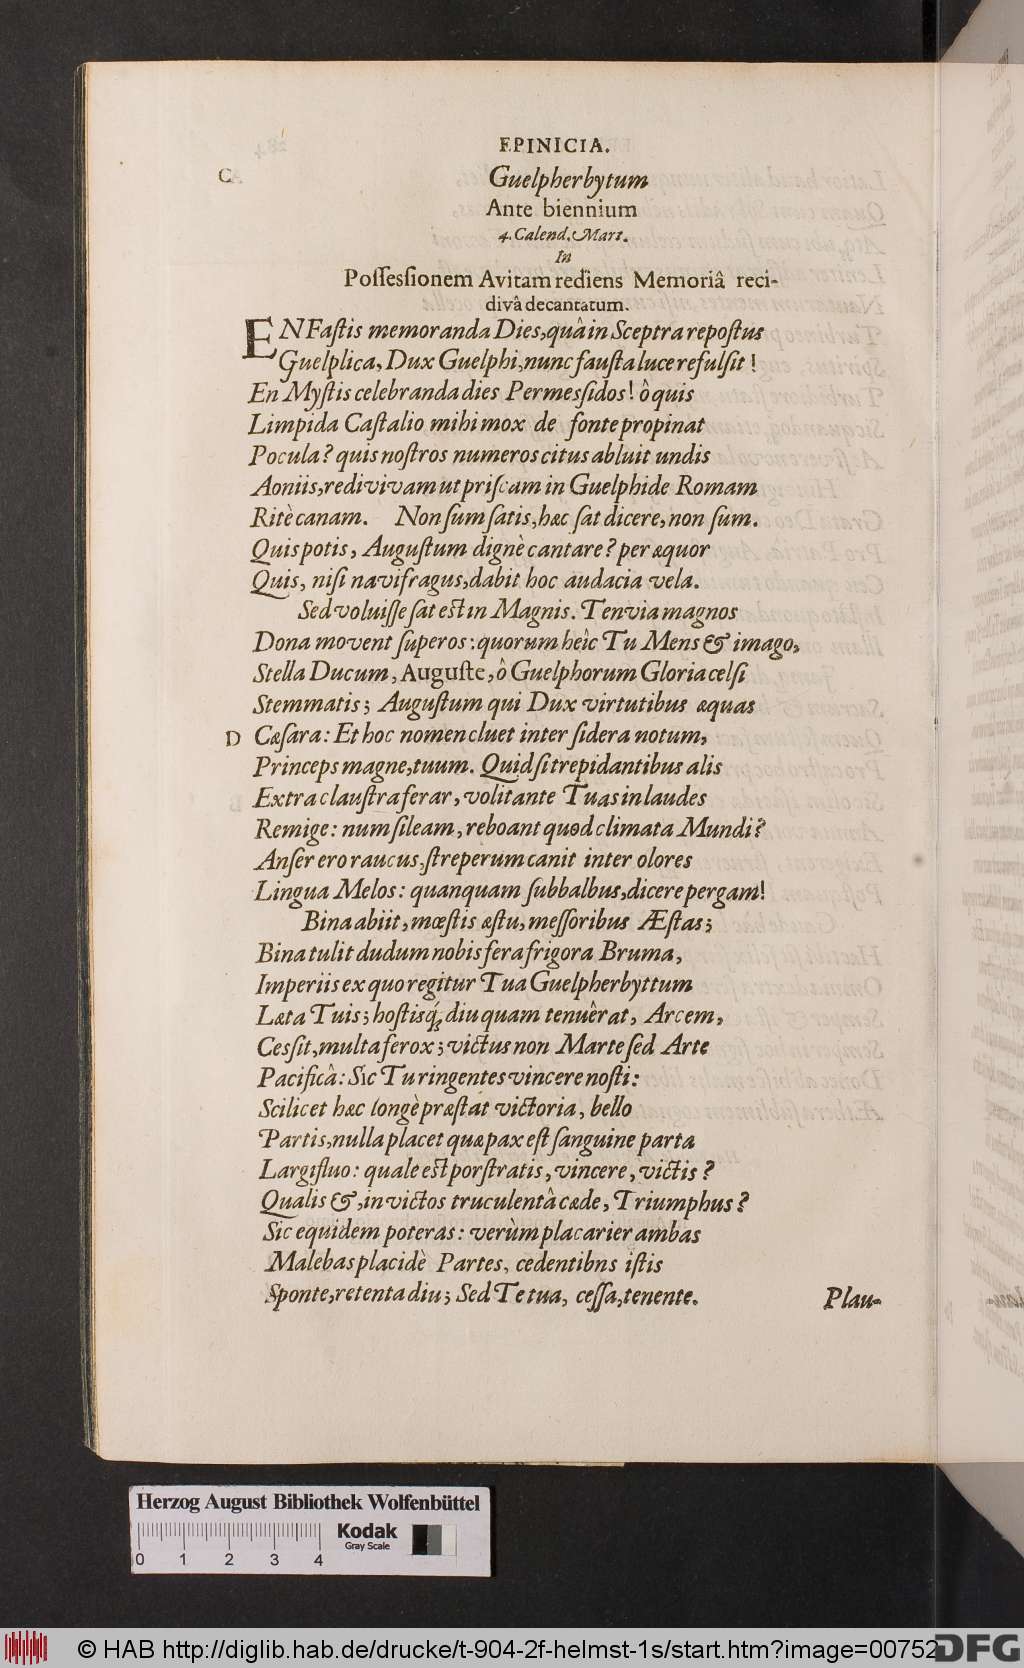 EPINICIA.
C
Guelpherbytum
Ante biennium
4. Calend. Mart.
In
Posſesſionem Avitam rediens Memoriâ reci-
divâ decantatum.
EN Faſtis memoranda Dies, quâ in Sceptra repoſtus
Guelplica, Dux Guelphi, nunc fauſta luce refulſit!
En Myſtis celebranda dies Permesſidos! ô quis
Limpida Caſtalio mihi mox de fonte propinat
Pocula? quis noſtros numeros citus abluit undis
Aoniis, redivivam ut priſcam in Guelphide Romam
Ritè canam. Non ſum ſatis, hæc ſat dicere, non ſum.
Quis potis, Auguſtum dignè cantare? per æquor
Quis, niſi navifragus, dabit hoc audacia vela.
Sed voluiſſe ſat eſt in Magnis. Tenvia magnos
Dona movent ſuperos: quorum heîc Tu Mens & imago,
Stella Ducum, Auguſte, ô Guelphorum Gloria celſi
Stemmatis; Auguſtum qui Dux virtutibus æquas
D Cæſara: Et hoc nomen cluet inter ſidera notum,
Princeps magne, tuum. Quid ſi trepidantibus alis
Extra clauſtra ferar, volitante Tuas in laudes
Remige: num ſileam, reboant quod climata Mundi?
Anſer ero raucus, ſtreperum canit inter olores
Lingua Melos: quanquam ſubbalbus, dicere pergam!
Bina abiit, mœſtis æſtu, meſſoribus Æſtas;
Bina tulit dudum nobis fera frigora Bruma,
Imperiis ex quo regitur Tua Guelpherbyttum
Læta Tuis; hoſtisq́; diu quam tenuêrat, Arcem,
Cesſit, multa ferox; victus non Marte ſed Arte
Pacificâ: Sic Tu ringentes vincere noſti:
Scilicet hæc longè præſtat victoria, bello
Partis, nulla placet quæ pax eſt ſanguine parta
Largifluo: quale eſt porſtratis, vincere, victis?
Qualis &, invictos truculentâ cæde, Triumphus?
Sic equidem poteras: verùm placarier ambas
Malebas placidè Partes, cedentibns iſtis
Sponte, retenta diu; Sed Te tua, ceſſa, tenente.
Plau-
Herzog August Bibliothek Wolfenbüttel
0 1 2 3 4
Kodak
Gray Scale
© HAB http://diglib.hab.de/drucke/t-904-2f-helmst-1s/start.htm?image=00752
DFG